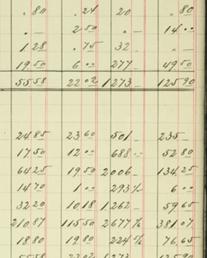 .80 .24 20 .80
.— 2.50 .— 14.00
1.28 .75 32 .—
19.50 6.00 277 49.50
55.58 22.02 1273— 125.90
24.85 23.60 501 235—
17.50 12.00 688 52.80
64.25 19.50 2006— 134.25
14.70 1.00 293½ 6.00
32.20 10.18 1262 59.65
210.87 115.50 2677½ 381.07
18.80 19.80 224½ 76.65